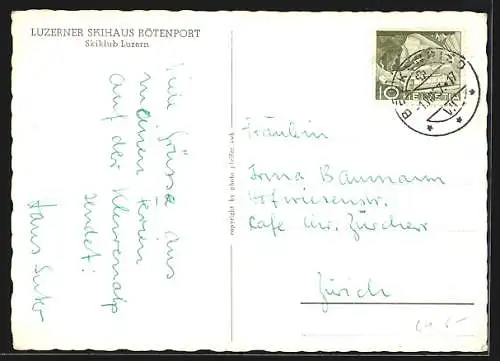 LUZERNER SKIHAUS RÖTENPORT
Skiklub Luzern
Viele Grüsse aus
meinen Ferien
auf der Klewenalp
sendet!
Hans Suter
copyright by photo pfeifer
10 HELVETIA
Fräulein
Irma Baumann
Hofwiesenstr.
Kafe Zürcher
Zürich